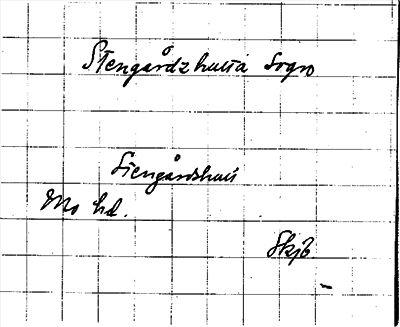 Stengårdzhulta Sogn
Stengårdshult
Mo hd.
Skjb